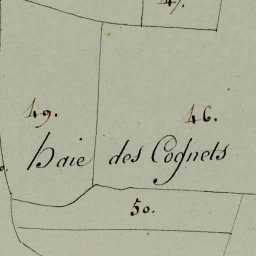 47.
49.
46.
haie des Cognets
50.